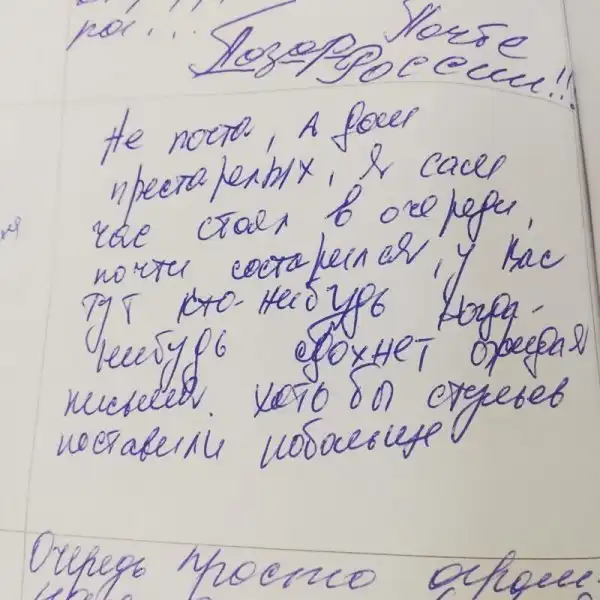 Позор Почте
России!!!
Не почта, А дом
престарелых, Я сам
час стоял в очереди,
почти состарился, у Вас
тут кто-нибудь когда-
нибудь сдохнет ожидая
письма. хоть бы стульев
поставили побольше
Очередь просто огром-